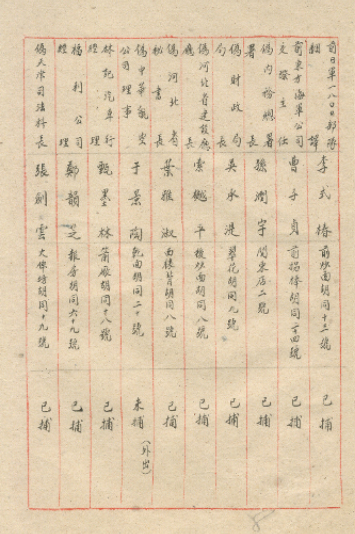 前日軍一八〇日部隊翻譯 李式椿 前炒面胡同十三號 已捕
前東方海軍公司文滕主任 曹子貞 前拐棒胡同一百四號 已捕
偽內務總署署長 張潤宇 關東店二號 已捕
偽財政局局長 吳承湜 翠花胡同九號 已捕
偽河北省建設廳廳長 索樾平 後炒面胡同八號 已捕
偽河北省秘書長 葉雅淑 西裱背胡同八號 已捕
偽中華航空公司理事 于景陶 乾面胡同二十號 未捕(外出)
林記汽車行經理 甄墨林 蕭廠胡同十八號 已捕
福利公司經理 鄭韻芝 報房胡同六十九號 已捕
偽天津司法科長 張劍雲 大佛堂胡同十九號 已捕